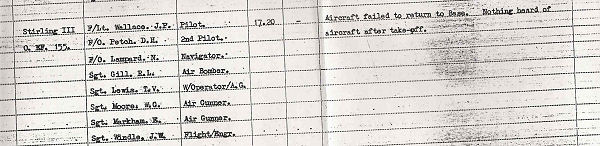 Stirling III F/Lt. Wallace. J.F. Pilot. 17.20 - Aircraft failed to return to Base. Nothing heard of
O. EF. 155. P/O. Petch. D.H. 2nd Pilot. aircraft after take-off.
F/O. Lempard. N. Navigator.
Sgt. Gill. R.L. Air Bomber.
Sgt. Lewis. T.V. W/Operator/A.G.
Sgt. Moore. W.G. Air Gunner.
Sgt. Markham. E. Air Gunner.
Sgt. Windle. J.W. Flight/Engr.